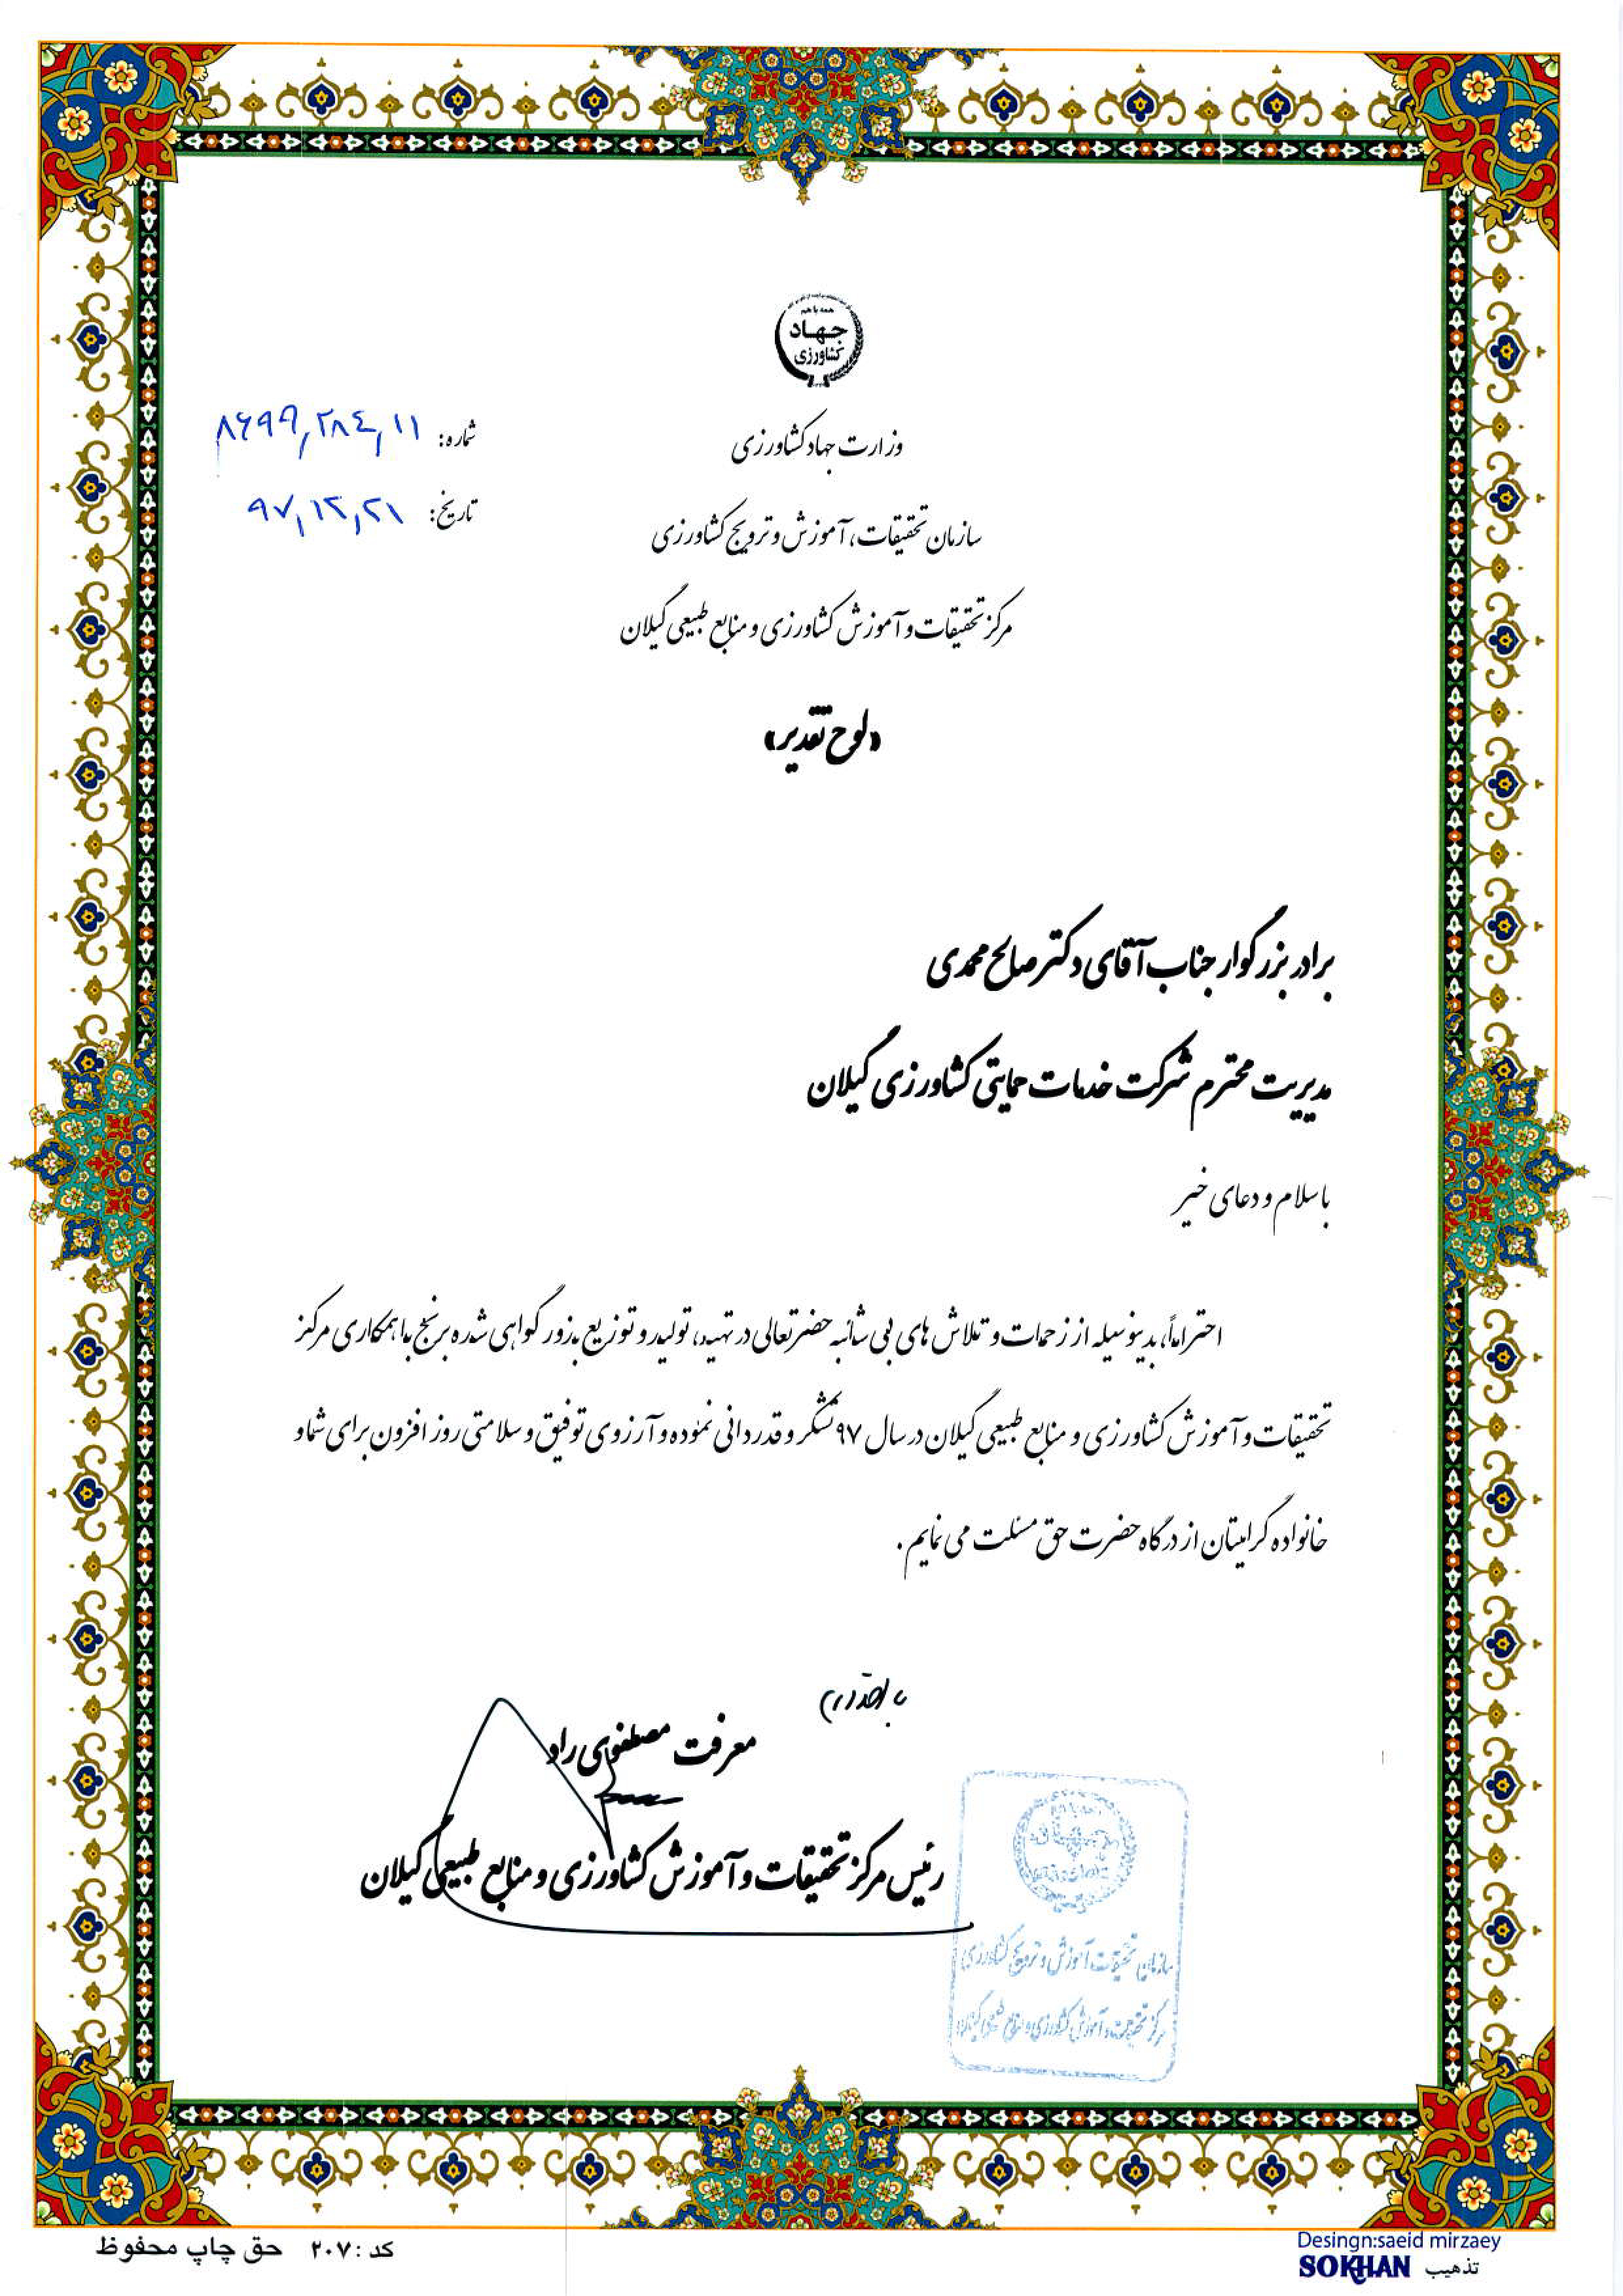 همه با هم
جهاد
کشاورزی
وزارت جهاد کشاورزی
شماره: ۸۶۹۹,۲۸۴,۱۱
سازمان تحقیقات، آموزش و ترویج کشاورزی
تاریخ: ۹۷,۱۲,۲۱
مرکز تحقیقات و آموزش کشاورزی و منابع طبیعی گیلان
«لوح تقدیر»
برادر بزرگوار جناب آقای دکتر صالح محمدی
مدیریت محترم شرکت خدمات حمایتی کشاورزی گیلان
با سلام و دعای خیر
احتراماً، بدینوسیله از زحمات و تلاش های بی شائبه حضرتعالی در تهیه، تولید و توزیع بذور گواهی شده برنج با همکاری مرکز
تحقیقات و آموزش کشاورزی و منابع طبیعی گیلان در سال ۹۷ تشکر و قدردانی نموده و آرزوی توفیق و سلامتی روز افزون برای شما و
خانواده گرامیتان از درگاه حضرت حق مسئلت می نمایم.
معرفت مصطفوی راد
رئیس مرکز تحقیقات و آموزش کشاورزی و منابع طبیعی گیلان
سازمان تحقیقات آموزش و ترویج کشاورزی
مرکز تحقیقات و آموزش کشاورزی و منابع طبیعی گیلان
کد : ۲۰۷ حق چاپ محفوظ
Desingn:saeid mirzaey
تذهیب SOKHAN